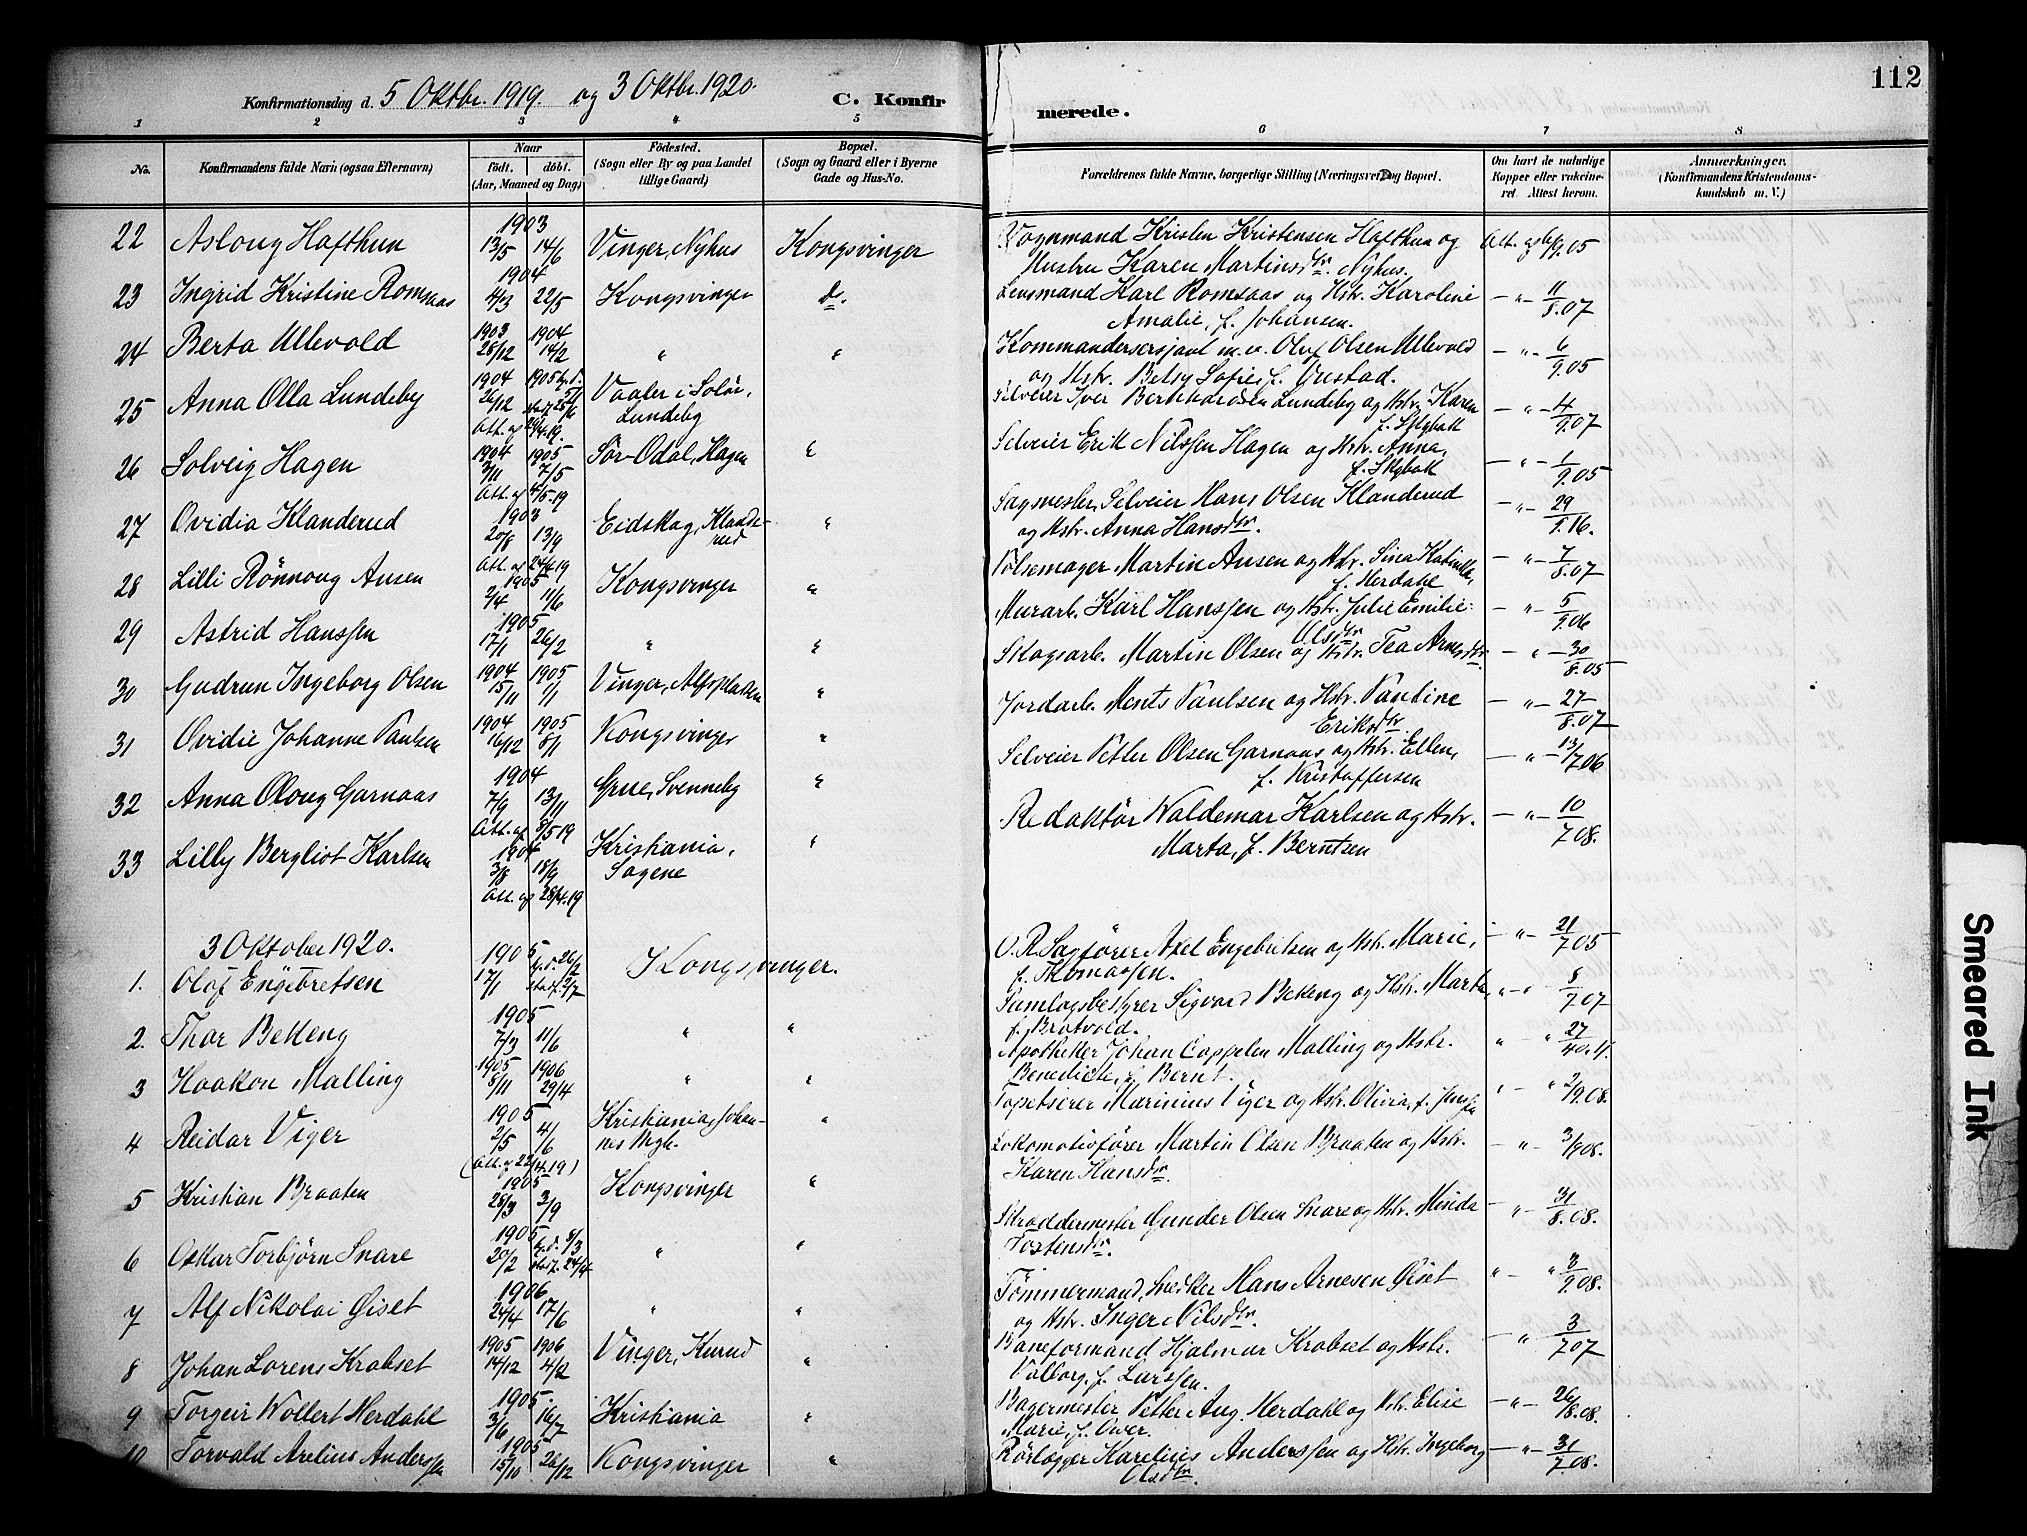 112
Konfirmationsdag d. 5 Oktbr. 1919. og 3 Oktbr. 1920.
C. Konfirmerede.
1 2 3 4 5 6 7 8
No. Konfirmandens fulde Navn (ogsaa Efternavn) Naar födt. döbt. (Aar, Maaned og Dag) Födested. (Sogn eller By og paa Landet tillige Gaard) Bopæl. (Sogn og Gaard eller i Byerne Gade og Hus-No.
Forældrenes fulde Navne, borgerlige Stilling (Næringsvei) og Bopæl. Om havt de naturlige Kopper eller vakcineret. Attest herom. Anmærkninger. (Konfirmandens Kristendomskundskab m. V.)
22 Aslaug Hafthun 1903 13/5 14/6 Vinger, Nyhus Kongsvinger Vognmand Kristen Kristensen Hafthun og Hustru Karen Martinsdtr. Nyhus.
23 Ingrid Kristine Romsaas 1904 4/3 22/5 Kongsvinger d. Lensmand Karl Romsaas og Hstr. Karoline Amalie, f. Johansen. — " — 11/8.07
24 Berta Ullevold 1903 28/12 1904 14/2 " " Kommandersersjant m.v. Oluf Olsen Ullevold og Hstr. Betsy Sofie, f. Gustad. — " — 6/9.05
25 Anna Olla Lundeby 1904 26/12 1905 Att. af 29/4.19. Vaaler i Solör, Lundeby " Selveier Iver Lundeby og Hstr. Karen f. Skybak — " — 4/9.07
26 Solveig Hagen 1904 3/11 1905 7/5 Att. af 4/5.19 Sör-Odal, Hagen " Selveier Erik Nilssen Hagen og Hstr. Anna, f. Skybak — " — 1/9.05
27 Ovidia Klanderud 1903 20/8 13/9 Att. af 24/4.19 Eidskog, Klanderud " Sagmester, Selveier Hans Olsen Klanderud og Hstr. Anna Hansdtr. — " — 29/9.16.
28 Lilli Rönnoug Ausen 1905 2/4 11/6 Kongsvinger " Pölsemager Martin Ausen og Hstr. Sina Katinka, f. Herdahl — " — 7/8.07
29 Astrid Hanssen 1905 17/1 26/2 " " Murarb. Karl Hanssen og Hstr. Julie Emilie Olsdtr — " — 5/9.06
30 Gudrun Ingeborg Olsen 1904 15/11 1905 1/1 Vinger, Alfspladsen " Skogsarb. Martin Olsen og Hstr. Tea Arnesdtr. — " — 30/8.05
31 Ovidie Johanne Paulsen 1904 16/12 1905 8/1 Kongsvinger " Jordarb. Ments Paulsen og Hstr. Pauline Eriksdtr — " — 27/8.07
32 Anna Oloug Garnaas 1904 7/9 13/11 Att. af 8/5 19 Grue, Svenneby " Selveier Petter Olsen Garnaas og Hstr. Ellen, f. Kristoffersen — " — 13/7.06
33 Lilly Bergliot Karlsen 1904 3/8 18/9 Att. af 28/4.19 Kristiania, Sagene " Redaktör Waldemar Karlsen og Hstr. Marta, f. Berntsen — " — 10/7 08.
3 Oktober 1920.
1. Olaf Engebretsen 1905 17/1 hj.d. 26/2 stadf. 2/7 Kongsvinger. O.R.Sagförer Axel Engebretsen og Hstr. Marie, f. Thomassen. — " — 21/7 05
2. Thor Bekkeng 1905 7/3 11/6 " " Samlagsbestyrer Sigvard Bekkeng og Hstr. Marta, f. Brotvold. " — 8/7 07
3 Haakon Malling 1905 5/11 1906 29/4 " " Apotheker Johan Cappelen Malling og Hstr. Benedicte, f. Bernt.
4 Reidar Viger 1905 2/5 4/6 (Att. af 22/4.19) Kristiania, Johannes Mgh. " Tapetserer Marinius Viger og Hstr. Olivia, f. " — " 2/9 08.
5 Kristian Braaten 1905 28/3 3/9 Kongsvinger " Lokomotivförer Martin Olsen Braaten og Hstr. Karen Hansdtr. — " — 3/9 08.
6 Oskar Torbjörn Snare 1905 20/2 hj.d. 8/3 stadf. 24/4 " " Skræddermester Gunder Olsen Snare og Hstr. Minda Tostensdtr. — " — 31/8.08.
7 Alf Nikolai Öiset 1906 24/4 17/6 " " Tömmermand, Snedker Hans Arnesen Öiset og Hstr. Inger Nilsdtr. " — " 3/9.08.
8 Johan Lorens Krabset 1905 14/12 1906 4/2 Vinger, Kurud " Baneformand Hjalmar Krabset og Hstr. Valborg, f. Larssen. — " — 3/7 07
9 Torgeir Wollert Herdahl 1905. 3/6 16/7 Kristiania " Bagermester Petter Aug. Herdahl og Hstr. Elise Marie, f. Over. — " — 26/8.08.
10 Torvald Arelius Anderssen 1905 15/10 26/12 Kongsvinger " Rörlægger Karelius Anderssen og Hstr. Ingeborg Olsdtr. — " — 31/7.08.
Smeared Ink